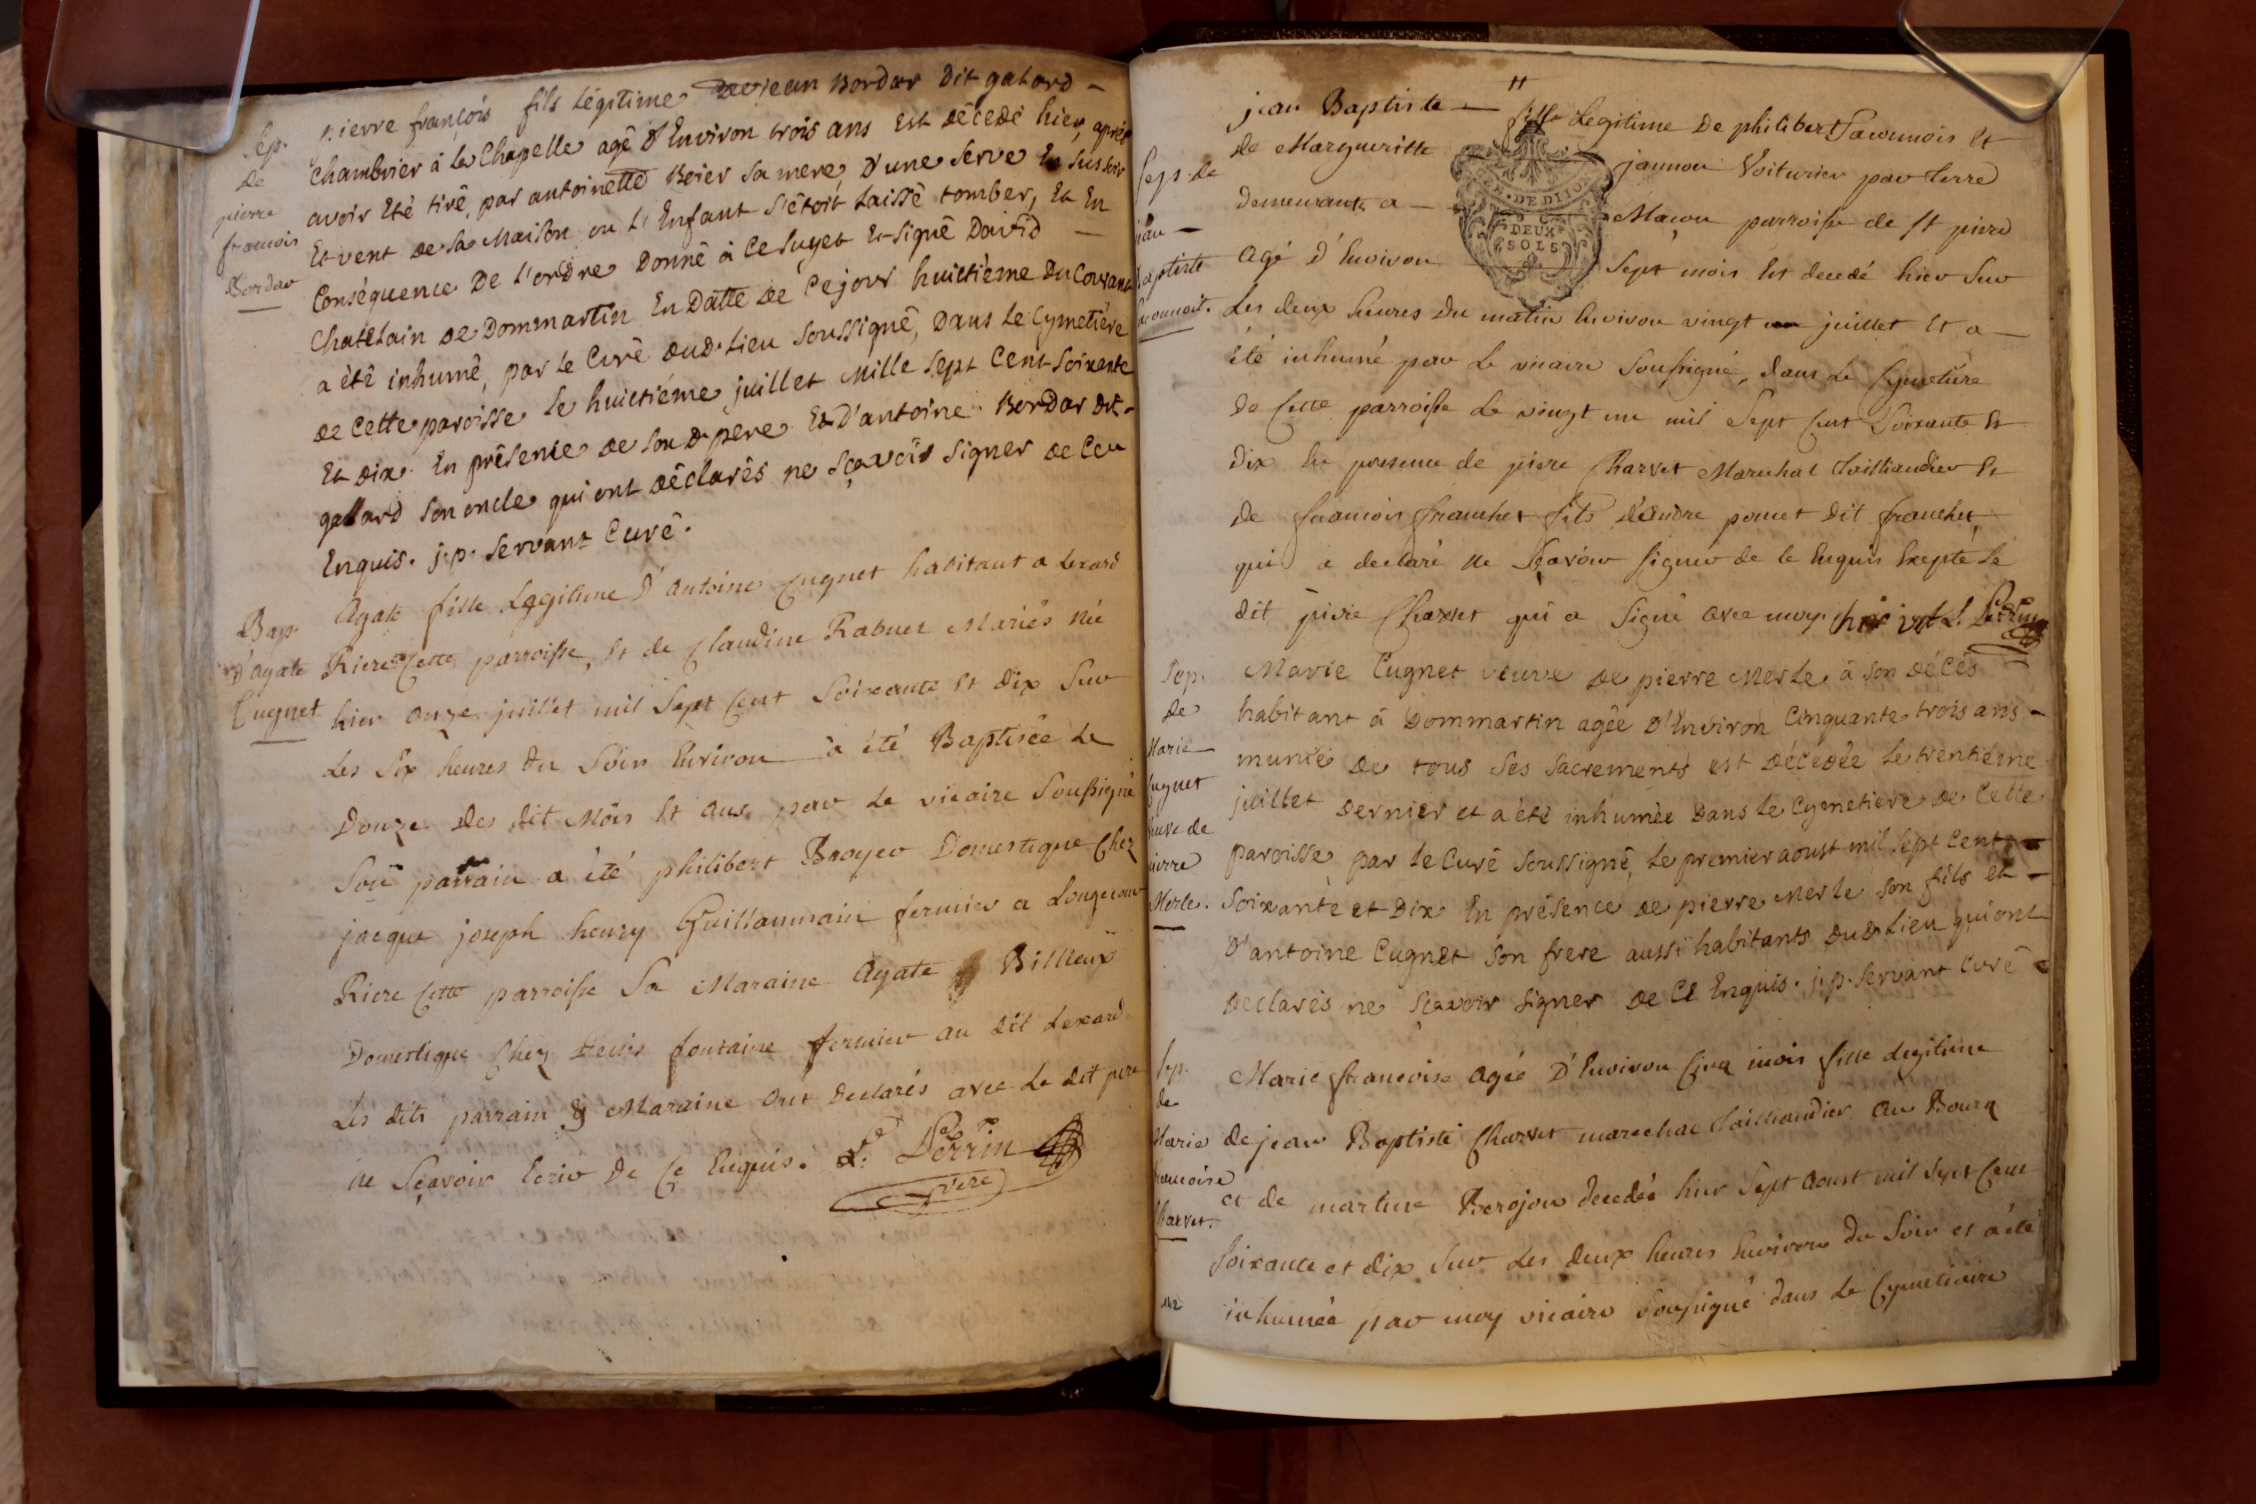 Sep.
de
pierre
francois
Bordar
pierre françois fils légitime de jean Bordar dit galard –
Chambrier à la Chapelle agé d'Environ trois ans est décédé hier, après
avoir été tiré, par antoinette Beier sa mere, d'une serve en sus soir
Et vent de sa Maison ou l'Enfant s'étoit laissé tomber, Et En
Conséquence De l'ordre Donné à ce sujet Et signé David –
Chatelain de Dommartin En Datte de ce jour huictiéme du Courant
a été inhumé, par le Curé dud. lieu soussigné, Dans le Cymetiére
de Cette paroisse le huictiéme juillet Mille sept Cent Soixente
Et dix. En présence de son d. pere Et D'antoine Bordar dit
galard son oncle qui ont déclarés ne sçavoir signer de Ceu
Enquis. j. p. servant Curé.
Bap.
d'agate
Cugnet
Agate fille Legitime d'antoine Cugnet habitant a Lexard
Riere Cette parroisse, Et de Claudine Rabuel Mariés née
hier onze juillet mil Sept Cent Soixante et dix Sur
Les Six heures du Soir Environ à été Baptisée Le
Douze des dit Mois Et ans par Le vicaire Soussigné
Son parrain a été philibert Broyer Domestique Chez
jacque joseph henry Guillaumain fermier a Longecour
Riere Cette parroisse Sa Maraine Agate Billieux
Domestique Chez Denis fontaine fermier au dit Lexard
Les dits parrain & Maraine ont declarés avec Le dit pere
ne Sçavoir Ecrire De Ce Enquis. L. Perrin
vicre
11
Sep. de
jean
Baptiste
jean Baptiste – fils Legitime de philibert Sacunnois Et
de Margueritte jannon Voiturier par terre
demeurants a – Macon parroisse de St pierre
GEN. DE DIJON
DEUX
SOLS
Agé d'Environ sept mois Est decedé hier Sur
Les deux heures du matin Environ vingt un juillet Et a –
été inhumé par Le vicaire Soussigné, dans Le Cymetière
de Cette parroisse Le vingt un mil Sept Cent Soixante Et
dix En presence de piere Charvet Marechal Tailliandier Et
de francois franchet fils d'andre ponet dit franchet
qui a declaré ne Sçavoir signer de Ce Enquis Excepté Le
dit piere Charvet qui a Signé avec moy. Charvet L. Perrin
Sep.
de
Marie
Cugnet
veuve de
pierre
Merle.
Marie Cugnet veuve de pierre Merle à son décés
habitant à Dommartin agée d'Environ Cinquante trois ans –
munie de tous ses sacrements est décédée le trentiéme
juillet dernier et a été inhumée Dans le Cymetiere de Cette
paroisse, par le Curé soussigné, le premier aoust mil sept Cent
Soixante et Dix En présence de pierre Merle son fils et –
D'antoine Cugnet son frere aussi habitants dud. lieu qui ont
declarés ne sçavoir signer de Ce Enquis. j. p. servant Curé
Sep.
de
Marie
francoise
Charvet.
Marie francoise agée d'Environ Cinq mois fille Legitime
de jean Baptiste Charvet marechal Tailliandier au Bourg
et de martine Berojon decedée hier Sept Aoust mil Sept Cent
Soixante et dix Sur Les deux heures Environ du Soir et a été
inhumée par moy vicaire Soussigné dans Le Cymetiaire